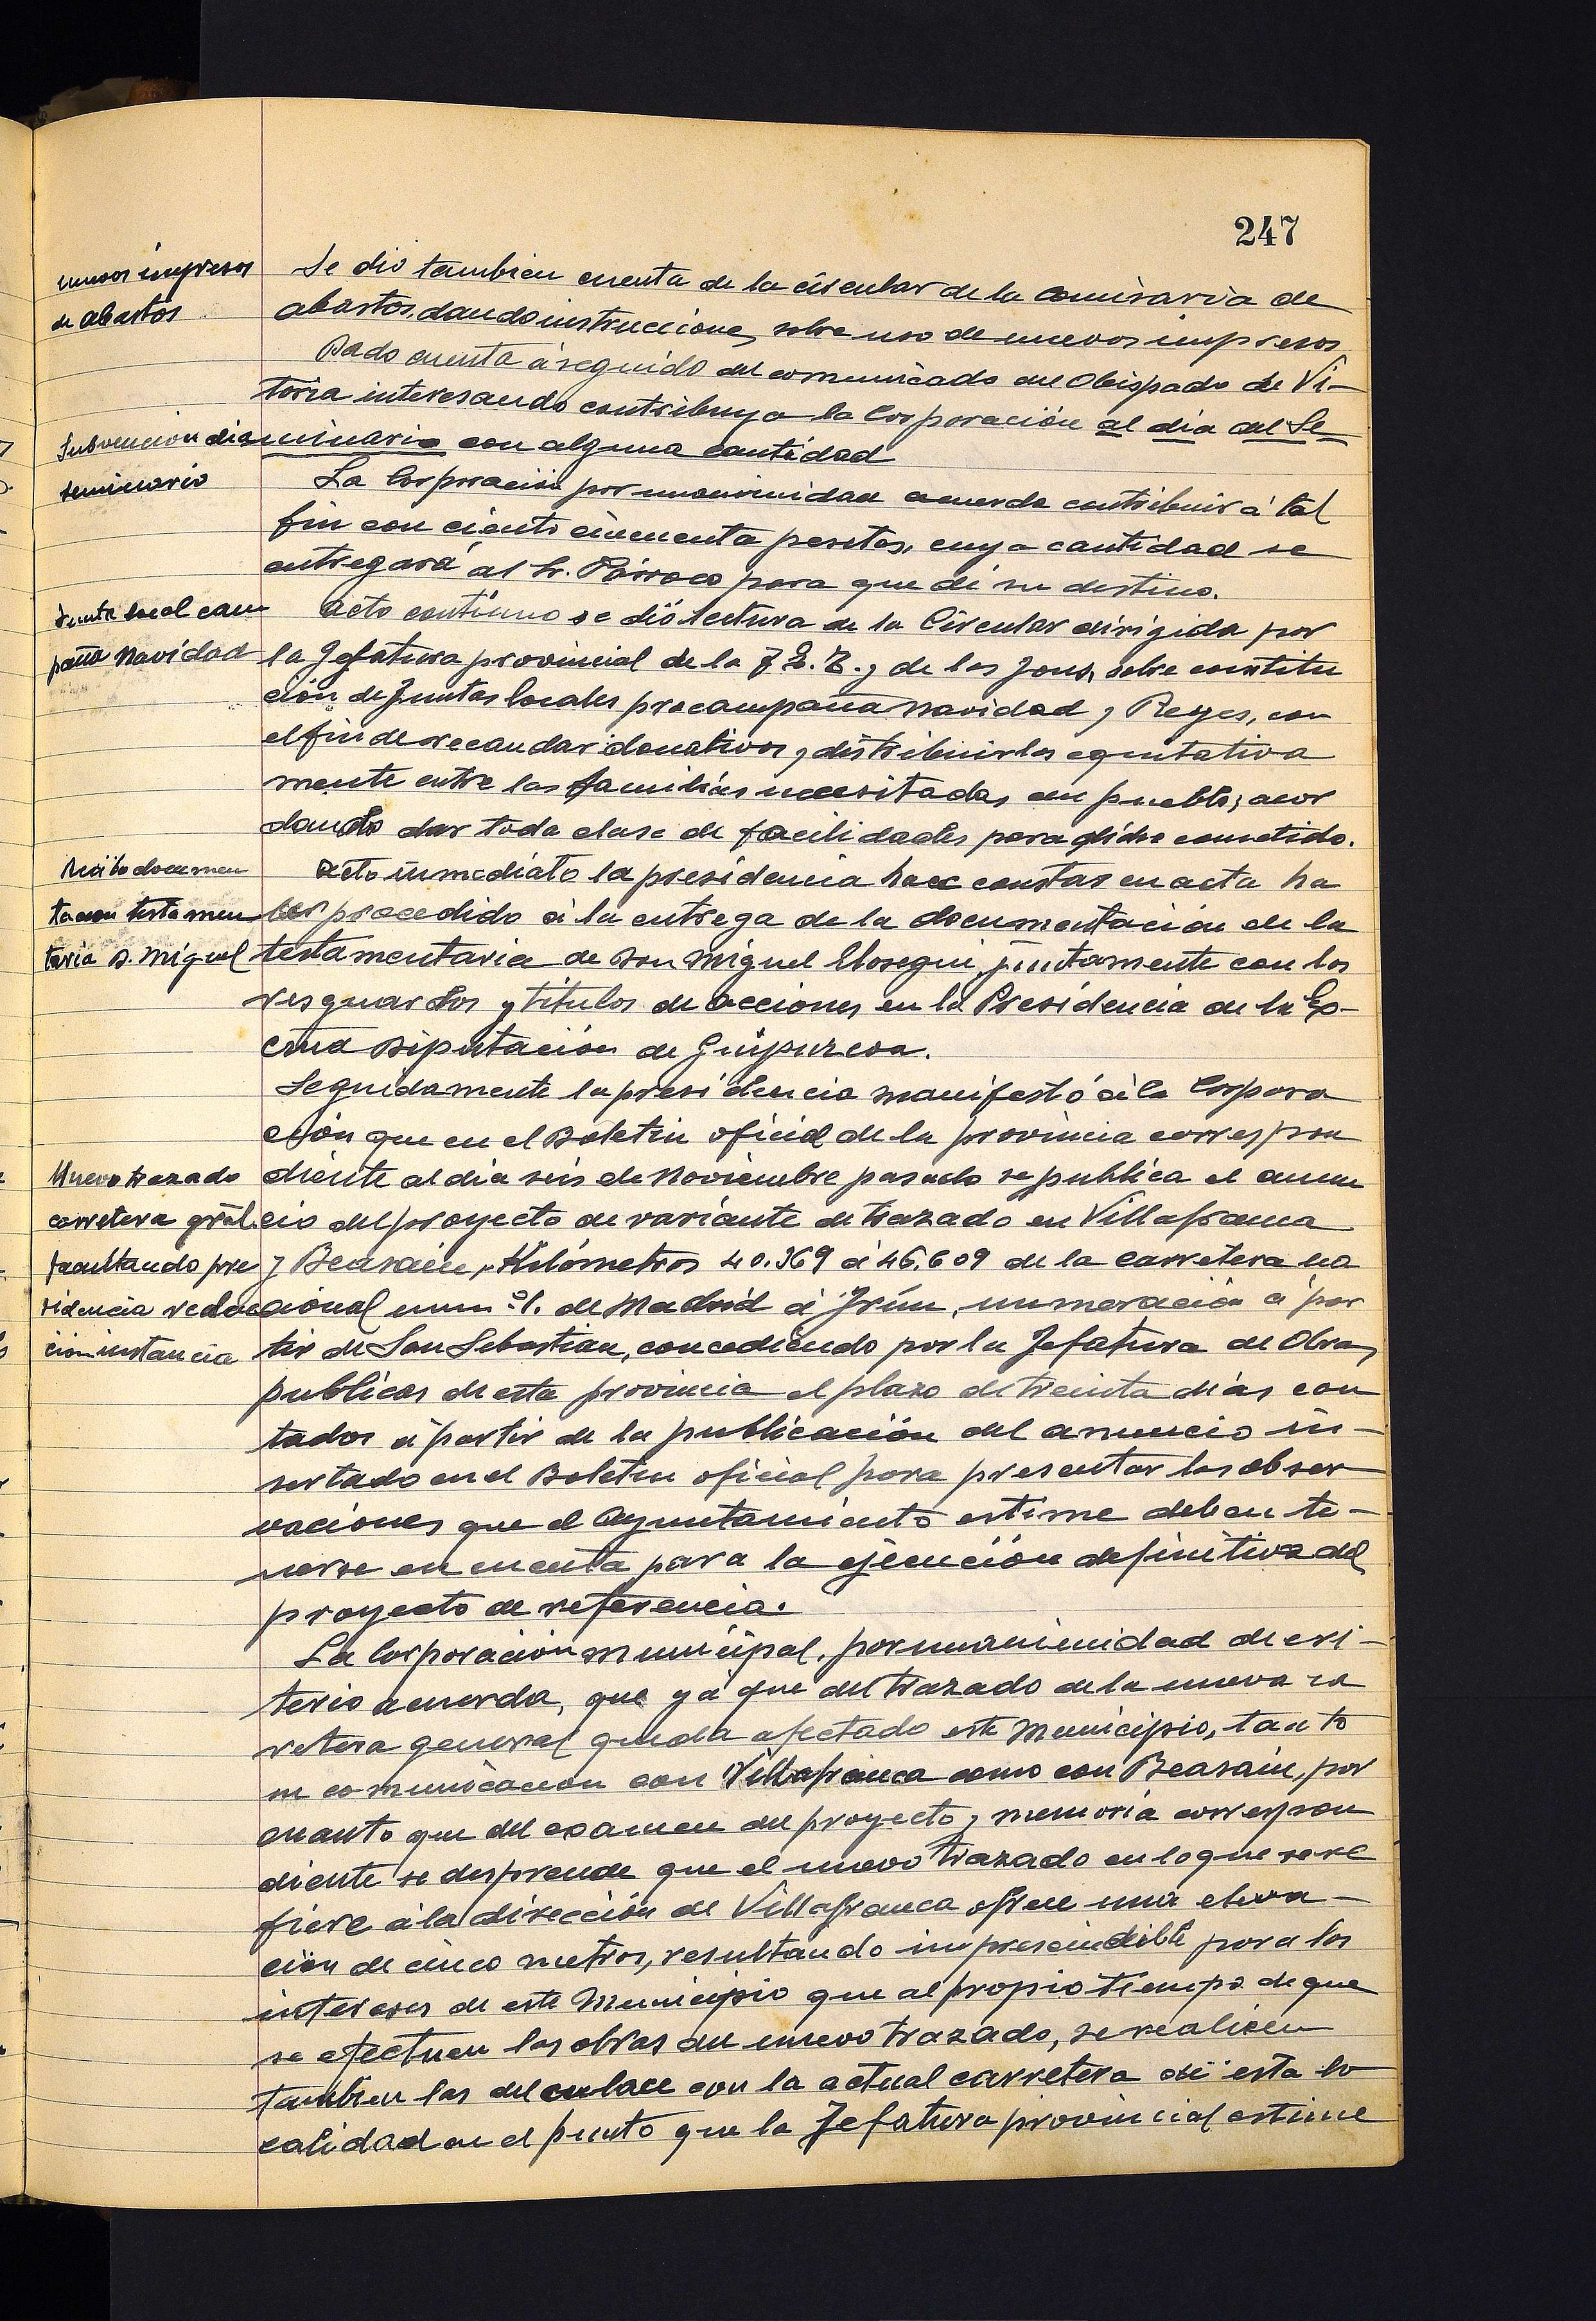 247
nuevos impresos
de abastos
Se dió tambien cuenta de la circular de la Comisaría de
abastos, dando instrucciones sobre uso de nuevos impresos
Dado cuenta á seguido del comunicado del Obispado de Vi-
toria interesando contribuya la Corporación al dia del Se-
Subvencion dia
seminario
minario con alguna cantidad
La Corporación por unanimidad acuerda contribuir á tal
fin con ciento cincuenta pesetas, cuya cantidad se
entregará al Sr. Párroco para que dé su destino.
Junta local cam
paña Navidad
Acto continuo se dió lectura de la Circular dirigida por
la Jefatura provincial de la F.E.T. y de las Jons, sobre constitu
ción de Juntas locales procampaña Navidad y Reyes, con
el fin de recaudar donativos y distribuirlos equitativa
mente entre las familias necesitadas del pueblo; acor
dando dar toda clase de facilidades para dicho cometido.
Recibo documen
tacion testamen
taria D. Miguel
Acto inmediato la presidencia hace constar en acta ha
ber procedido á la entrega de la documentación de la
testamentaria de Don Miguel Elosegui, juntamente con los
resguardos y titulos de acciones en la Presidencia de la Ex-
cma Diputación de Guipuzcoa.
Seguidamente la presidencia manifestó á la Corpora
ción que en el Boletin oficial de la provincia correspon
Nuevo trazado
carretera gral.
facultando pre
sidencia redac
cion instancia
diente al dia seis de Noviembre pasado se publica el anun
cio del proyecto de variante de trazado en Villafranca
y Beasain, Kilómetros 40.369 á 46.609 de la carretera na
cional num.º 1. de Madrid á Irún, numeración á par
tir de San Sebastian, concediendo por la Jefatura de Obras
publicas de esta provincia el plazo de treinta dias con
tados á partir de la publicación del anuncio in-
sertado en el Boletin oficial para presentar las obser
vaciones que el Ayuntamiento estime deben te-
nerse en cuenta para la ejecución definitiva del
proyecto de referencia.
La Corporación municipal, por unanimidad de cri-
terio acuerda, que ya que del trazado de la nueva ca
rretera general queda afectado este Municipio, tanto
en comunicacion con Villafranca como con Beasain, por
cuanto que del examen del proyecto y memoria correspon
diente se desprende que el nuevo trazado en lo que se re
fiere á la dirección de Villafranca ofrece una eleva-
ción de cinco metros, resultando imprescindible para los
intereses de este Municipio que al propio tiempo de que
se efectuen las obras del nuevo trazado, se realicen
tambien las del enlace con la actual carretera de esta lo
calidad en el punto que la Jefatura provincial estime